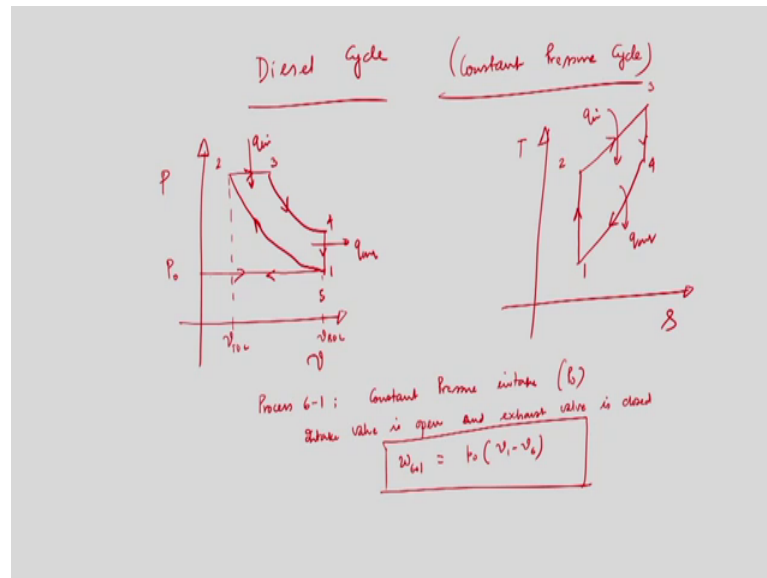 Diesel Cycle (Constant Pressure Cycle)
P
2
qin
3
4
qout
P₀
1
5
vTDC
vBDC
v
T
qin
3
2
4
qout
1
s
Process 6-1 : Constant Pressure intake (P₀)
Intake valve is open and exhaust valve is closed
w6-1 = P₀ (v₁-v₆)